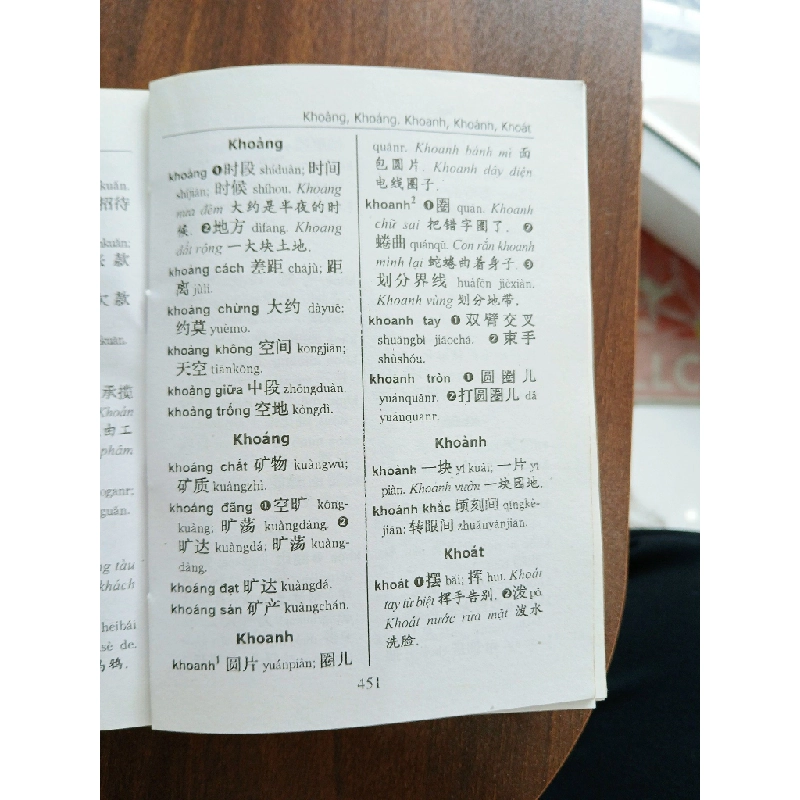 Khoảng, Khoáng, Khoanh, Khoảnh, Khoát
Khoảng
khoảng ❶时段 shíduàn; 时间
shíjiān; 时候 shíhou. Khoảng
nửa đêm 大约是半夜的时
候. ❷地方 dìfang. Khoảng
đất rộng 一大块土地.
khoảng cách 差距 chājù; 距
离 jùlí.
khoảng chừng 大约 dàyuē;
约莫 yuēmo.
khoảng không 空间 kōngjiān;
天空 tiānkōng.
khoảng giữa 中段 zhōngduàn.
khoảng trống 空地 kòngdì.
Khoáng
khoáng chất 矿物 kuàngwù;
矿质 kuàngzhì.
khoáng đãng ❶空旷 kōng-
kuàng; 旷荡 kuàngdàng. ❷
旷达 kuàngdá; 旷荡 kuàng-
dàng.
khoáng đạt 旷达 kuàngdá.
khoáng sản 矿产 kuàngchǎn.
Khoanh
khoanh¹ 圆片 yuánpiàn; 圈儿
quānr. Khoanh bánh mì 面
包圆片. Khoanh dây điện
电线圈子.
khoanh² ❶圈 quān. Khoanh
chữ sai 把错字圈了. ❷
蜷曲 quánqū. Con rắn khoanh
mình lại 蛇蜷曲着身子. ❸
划分界线 huàfēn jièxiàn.
Khoanh vùng 划分地带.
khoanh tay ❶双臂交叉
shuāngbì jiāochā. ❷束手
shùshǒu.
khoanh tròn ❶圆圈儿
yuánquānr. ❷打圆圈儿 dǎ
yuánquānr.
Khoảnh
khoảnh 一块 yī kuài; 一片 yī
piàn. Khoảnh vườn 一块园地.
khoảnh khắc 顷刻间 qǐngkè-
jiān; 转眼间 zhuǎnyǎnjiān.
Khoát
khoát ❶摆 bǎi; 挥 huī. Khoát
tay từ biệt 挥手告别. ❷泼 pō.
Khoát nước rửa mặt 泼水
洗脸.
451
kuǎn.
招待
kuǎn;
款
欠款
kuǎn.
承揽
Khoán
由工
phẩm
guǎn.
tàu
khách
heibái
sè de.
乌鸦.